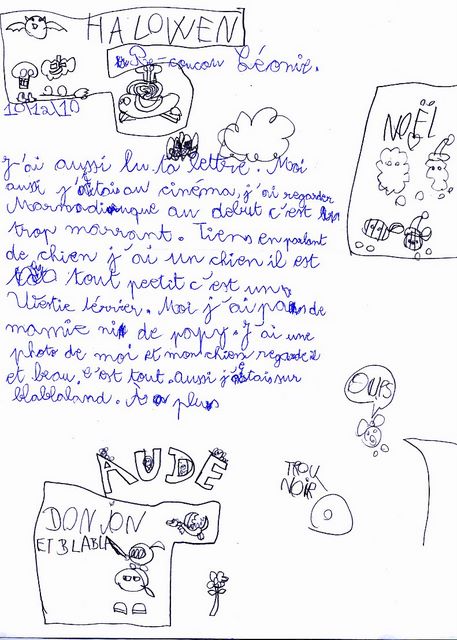 HALOWEN
Re-coucou Léonie.
10\12\10
NOËL
J'ai aussi lu ta lettre. Moi
aussi j'étais au cinema, j'ai regarder
Marmaduque au debut c'est
trop marrant. Tiens en parlant
de chien j'ai un chien il est
tout peetit c'est un
lévrier. Moi j'ai pas de
mamie ni de papy. J'ai une
photo de moi et mon chien regarde il
et beau. c'est tout. aussi j'étais sur
blablaland. A plus
OUPS
AUDE
TROU
NOIR
DONJON
ET BLABLA